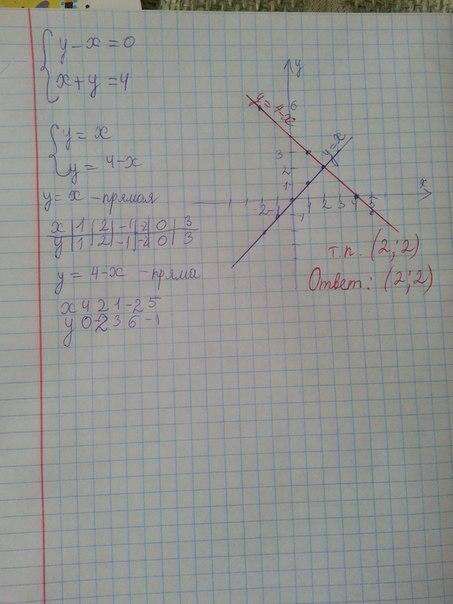 { y-x=0
x+y=4
{ y=x
y=4-x
y=x - прямая
x | 1 | 2 | -1 | -2 | 0 | 3
y | 1 | 2 | -1 | -2 | 0 | 3
y=4-x - пряма
x 4 2 1 -2 5
y 0 2 3 6 -1
y
6
y=4-x
y=x
3
2
1
x
2 -1 1 2 3 4 5
т.п. (2;2)
Ответ: (2;2)